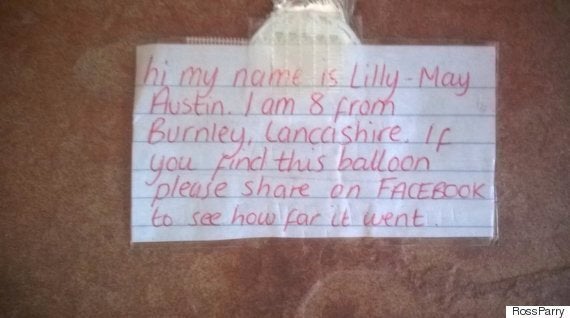 hi my name is Lilly-May
Austin. I am 8 from
Burnley, Lancashire. If
you find this balloon
please share on FACEBOOK
to see how far it went.
RossParry